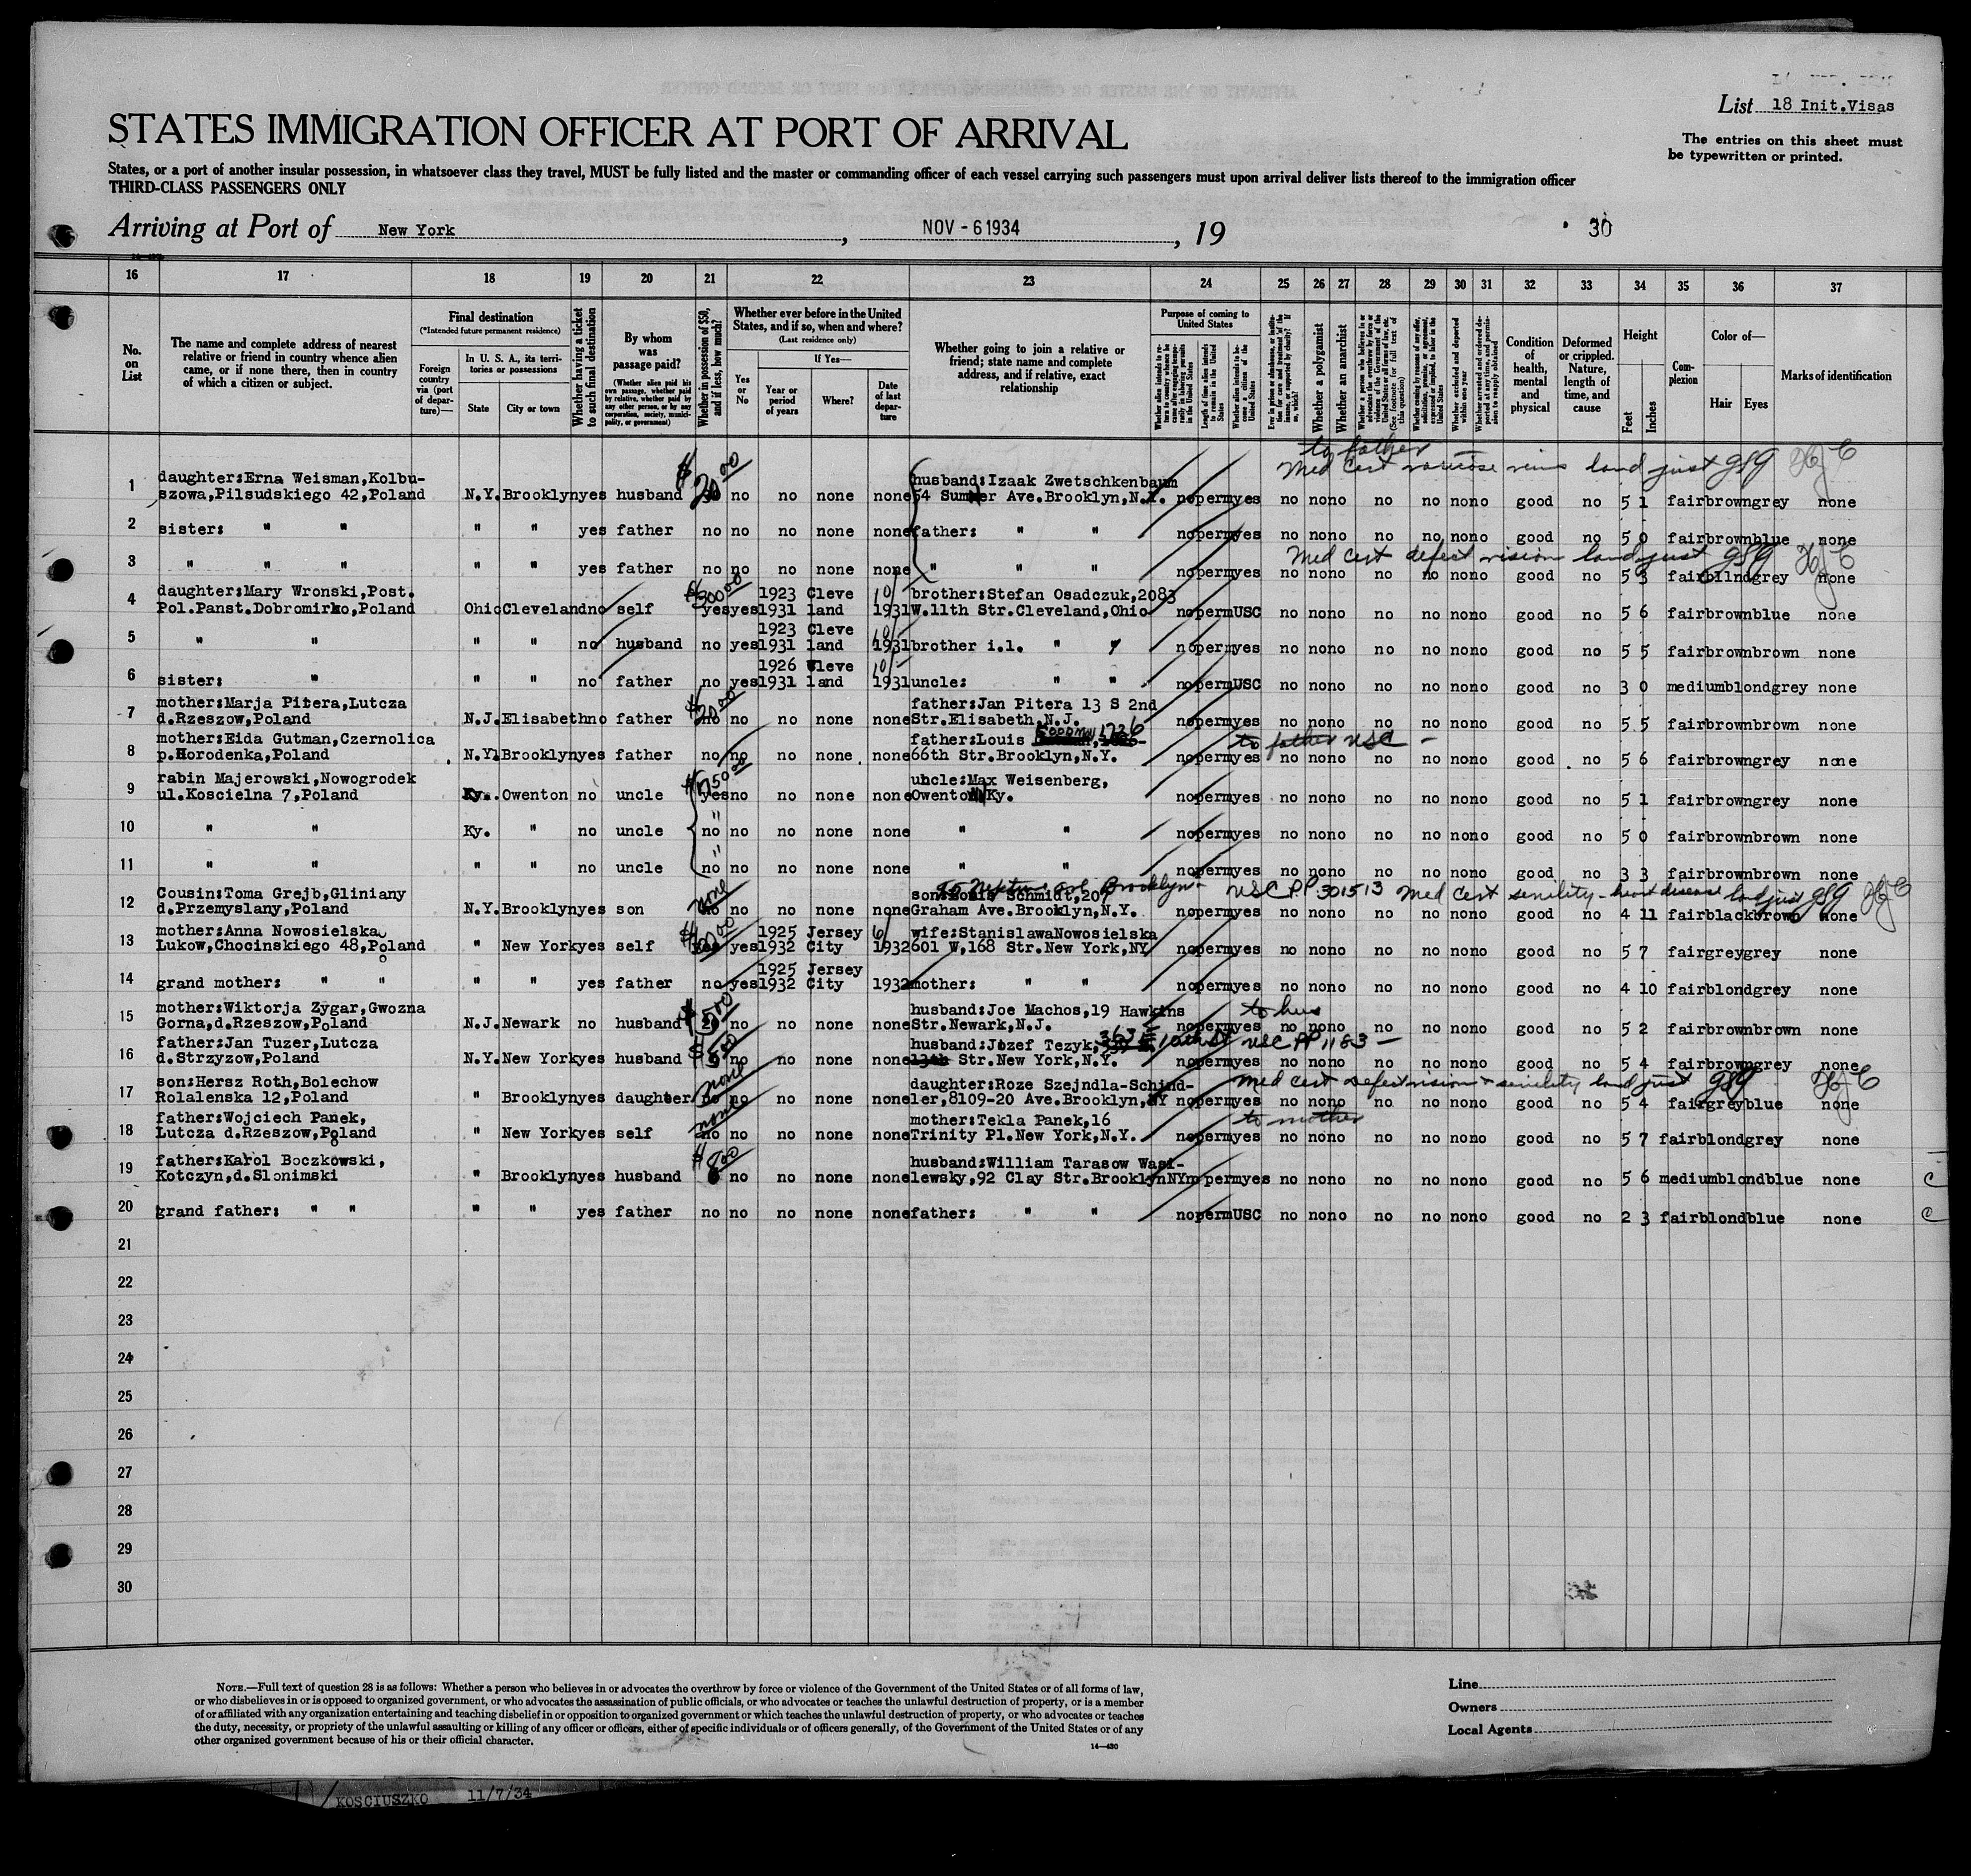 List 18 Init.Visas
STATES IMMIGRATION OFFICER AT PORT OF ARRIVAL
The entries on this sheet must
be typewritten or printed.
States, or a port of another insular possession, in whatsoever class they travel, MUST be fully listed and the master or commanding officer of each vessel carrying such passengers must upon arrival deliver lists thereof to the immigration officer
THIRD-CLASS PASSENGERS ONLY
Arriving at Port of New York, NOV - 6 1934, 19 30
16 17 18 19 20 21 22 23 24 25 26 27 28 29 30 31 32 33 34 35 36 37
No. on List
The name and complete address of nearest relative or friend in country whence alien came, or if none there, then in country of which a citizen or subject.
Final destination
(*Intended future permanent residence)
Foreign country via (port of departure)—
In U. S. A., its territories or possessions
State
City or town
Whether having a ticket to such final destination
By whom was passage paid?
(Whether alien paid his own passage, whether paid by relative, whether paid by any other person, or by any corporation, society, municipality, or government)
Whether in possession of $50, and if less, how much?
Whether ever before in the United States, and if so, when and where?
(Last residence only)
Yes or No
If Yes—
Year or period of years
Where?
Date of last departure
Whether going to join a relative or friend; state name and complete address, and if relative, exact relationship
Purpose of coming to United States
Length of time alien intends to remain in the United States
Whether alien intends to become a citizen of the United States
Whether a polygamist
Whether an anarchist
Condition of health, mental and physical
Deformed or crippled. Nature, length of time, and cause
Height
Feet
Inches
Complexion
Color of—
Hair
Eyes
Marks of identification
to father
Med Cert varicose veins land just
1 daughter:Erna Weisman,Kolbu- $20.00 husband:Izaak Zwetschkenbaum
szowa,Pilsudskiego 42,Poland N.Y. Brooklyn yes husband no no none none 54 Sumner Ave.Brooklyn,N.Y. no perm yes no no no no no no no good no 5 1 fair brown grey none
2 sister: " " " " yes father no no no none none father: " " no perm yes no no no no no no no good no 5 0 fair brown blue none
Med Cert defect vision land just
3 " " " " yes father no no no none none " " " no perm yes no no no no no no no good no 5 3 fair grey none
4 daughter:Mary Wronski,Post. $300.00 1923 Cleve 10/ brother:Stefan Osadczuk,2083
Pol.Panst.Dobromirko,Poland Ohio Cleveland no self yes yes 1931 land 1931 W.11th Str.Cleveland,Ohio no perm USC no no no no no no no good no 5 6 fair brown blue none
5 " " " " no husband no yes 1923 1931 Cleve land 10/ 1931 brother i.l. " " no perm yes no no no no no no no good no 5 5 fair brown brown none
6 sister: " " " no father no yes 1926 1931 Cleve land 10/ 1931 uncle: " " no perm USC no no no no no no no good no 3 0 medium blond grey none
7 mother:Marja Pitera,Lutcza $20.00 father:Jan Pitera 13 S 2nd
d.Rzeszow,Poland N.J. Elisabeth no father no no no none none Str.Elisabeth,N.J. no perm yes no no no no no no no good no 5 5 fair brown brown none
8 mother:Eida Gutman,Czernolica father:Louis 1726 to father USC
p.Horodenka,Poland N.Y. Brooklyn yes father no no no none none 66th Str.Brooklyn,N.Y. no perm yes no no no no no no no good no 5 6 fair brown grey none
9 rabin Majerowski,Nowogrodek uncle:Max Weisenberg,
ul.Koscielna 7,Poland Ky. Owenton no uncle yes no no none none Owenton Ky. no perm yes no no no no no no no good no 5 1 fair brown grey none
10 " " Ky. " no uncle no no no none none " " no perm yes no no no no no no no good no 5 0 fair brown brown none
11 " " " " no uncle no no no none none " " no perm yes no no no no no no no good no 3 3 fair brown brown none
Brooklyn USC PP 301513 Med Cert senility - heart disease land just
12 Cousin:Toma Grejb,Gliniany none son:Louis Schmidt,207
d.Przemyslany,Poland N.Y. Brooklyn yes son no no no none none Graham Ave.Brooklyn,N.Y. no perm yes no no no no no no no good no 4 11 fair black brown none
13 mother:Anna Nowosielska 1925 Jersey 6/ wife:StanislawaNowosielska
Lukow,Chocinskiego 48,Poland " New York yes self yes yes 1932 City 1932 601 W,168 Str.New York,NY no perm yes no no no no no no no good no 5 7 fair grey grey none
14 grand mother: " " " " yes father no yes 1925 1932 Jersey City 1932 mother: " " no perm yes no no no no no no no good no 4 10 fair blond grey none
15 mother:Wiktorja Zygar,Gwozna husband:Joe Machos,19 Hawkins to hus
Gorna,d.Rzeszow,Poland N.J. Newark no husband no no none none Str.Newark,N.J. no perm yes no no no no no no no good no 5 2 fair brown brown none
16 father:Jan Tuzer,Lutcza husband:Jozef Tezyk, USC PP 1183
d.Strzyzow,Poland N.Y. New York yes husband no no none none 13th Str.New York,N.Y. no perm yes no no no no no no no good no 5 4 fair brown grey none
Med Cert Defect vision + senility land just
17 son:Hersz Roth,Bolechow none daughter:Roze Szejndla-Schind-
Rolalenska 12,Poland " Brooklyn yes daughter no no no none none ler,8109-20 Ave.Brooklyn,NY no perm yes no no no no no no no good no 5 4 fair grey blue none
18 father:Wojciech Panek, none mother:Tekla Panek,16 to mother
Lutcza d.Rzeszow,Poland " New York yes self no no no none none Trinity Pl.New York,N.Y. no perm yes no no no no no no no good no 5 7 fair blond grey none
19 father:Karol Boczkowski, $8.00 husband:William Tarasow Wasi-
Kotczyn,d.Slonimski " Brooklyn yes husband no no none none lewsky,92 Clay Str.BrooklynNY no perm yes no no no no no no no good no 5 6 medium blond blue none
20 grand father: " " " " yes father no no no none none father: " " no perm USC no no no no no no no good no 2 3 fair blond blue none
21
22
23
24
25
26
27
28
29
30
NOTE.—Full text of question 28 is as follows: Whether a person who believes in or advocates the overthrow by force or violence of the Government of the United States or of all forms of law,
or who disbelieves in or is opposed to organized government, or who advocates the assassination of public officials, or who advocates or teaches the unlawful destruction of property, or is a member
of or affiliated with any organization entertaining and teaching disbelief in or opposition to organized government or which teaches the unlawful destruction of property, or who advocates or teaches
the duty, necessity, or propriety of the unlawful assaulting or killing of any officer or officers, either of specific individuals or of officers generally, of the Government of the United States or of any
other organized government because of his or their official character.
14—430
Line
Owners
Local Agents
KOSCIUSZKO 11/7/34